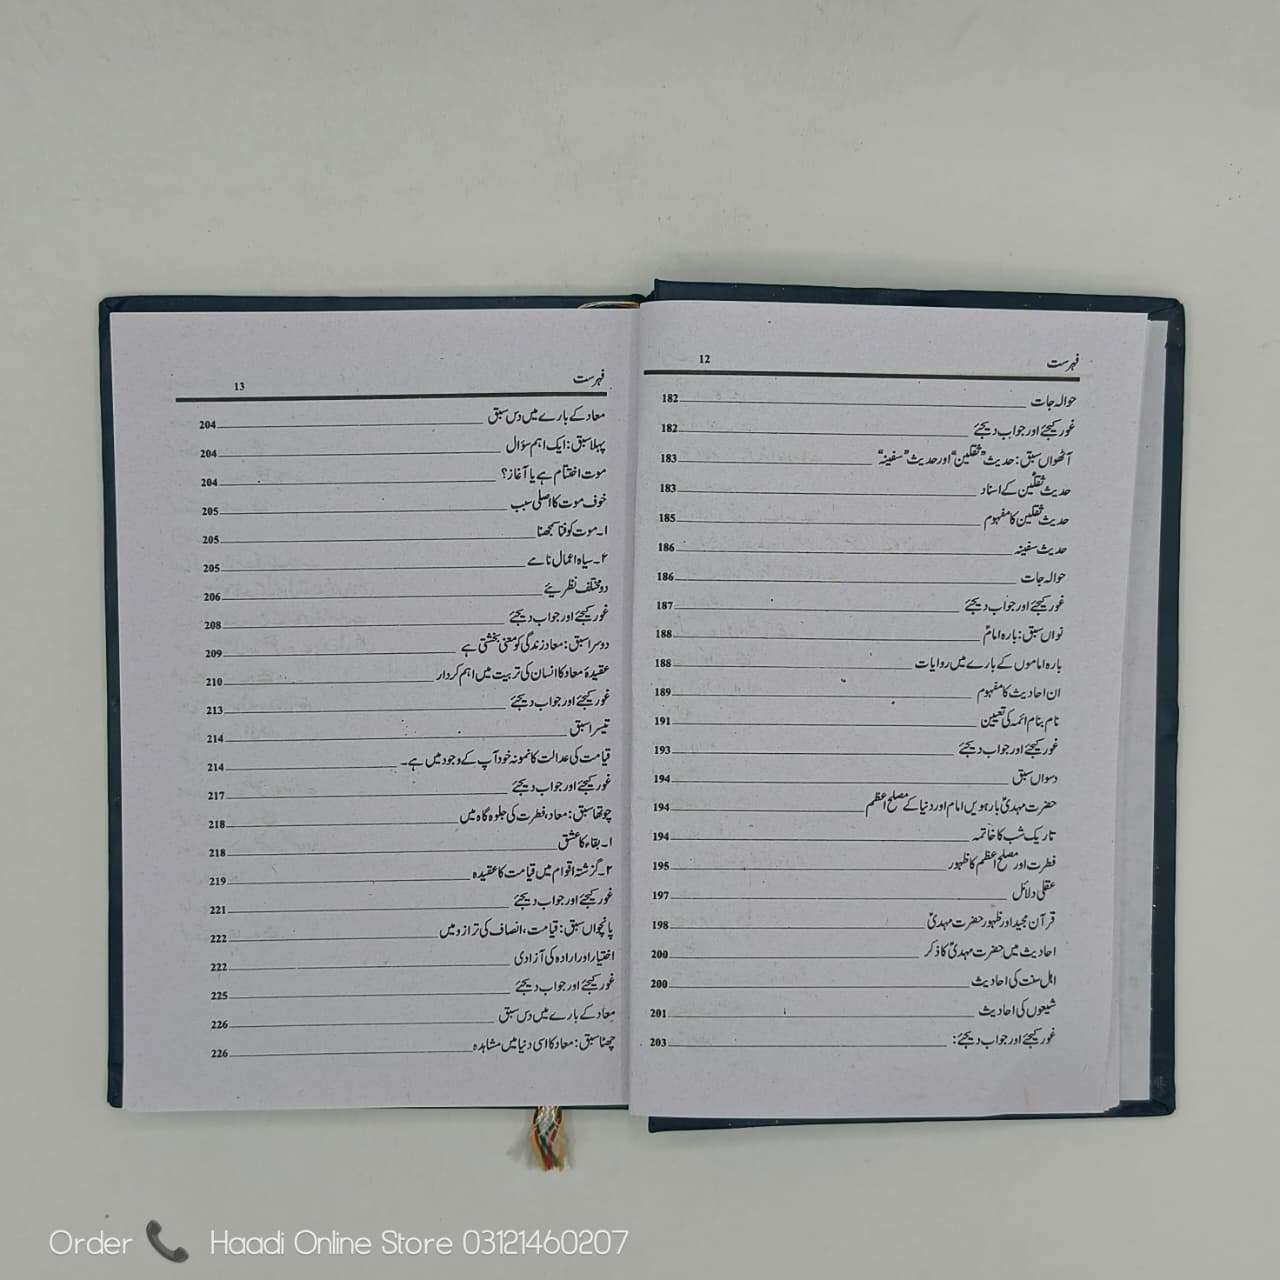 فہرست 12
حوالہ جات 182
غور کیجئے اور جواب دیجئے 182
آٹھواں سبق: حدیث "ثقلین" اور حدیث "سفینہ" 183
حدیث ثقلین کے اسناد 183
حدیث ثقلین کا مفہوم 185
حدیث سفینہ 186
حوالہ جات 186
غور کیجئے اور جواب دیجئے 187
نواں سبق: بارہ امامؑ 188
بارہ اماموں کے بارے میں روایات 188
ان احادیث کا مفہوم 189
نام بنام ائمہ کی تعیین 191
غور کیجئے اور جواب دیجئے 193
دسواں سبق 194
حضرت مہدیؑ بارہویں امام اور دنیا کے مصلح اعظم 194
تاریک شب کا خاتمہ 194
فطرت اور مصلح اعظم کا ظہور 195
عقلی دلائل 197
قرآن مجید اور ظہور حضرت مہدیؑ 198
احادیث میں حضرت مہدیؑ کا ذکر 200
اہل سنت کی احادیث 200
شیعوں کی احادیث 201
غور کیجئے اور جواب دیجئے: 203
فہرست 13
معاد کے بارے میں دس سبق 204
پہلا سبق: ایک اہم سؤال 204
موت اختتام ہے یا آغاز؟ 204
خوف موت کا اصلی سبب 205
۱۔ موت کو فنا سمجھنا 205
۲۔ سیاہ اعمال نامے 205
دو مختلف نظریئے 206
غور کیجئے اور جواب دیجئے 208
دوسرا سبق: معاد زندگی کو معنی بخشتی ہے 209
عقیدۂ معاد کا انسان کی تربیت میں اہم کردار 210
غور کیجئے اور جواب دیجئے 213
تیسرا سبق 214
قیامت کی عدالت کا نمونہ خود آپ کے وجود میں ہے۔ 214
غور کیجئے اور جواب دیجئے 217
چوتھا سبق: معاد، فطرت کی جلوہ گاہ میں 218
۱۔ بقاء کا عشق 218
۲۔ گزشتہ اقوام میں قیامت کا عقیدہ 219
غور کیجئے اور جواب دیجئے 221
پانچواں سبق: قیامت، انصاف کی ترازو میں 222
اختیار اور ارادہ کی آزادی 222
غور کیجئے اور جواب دیجئے 225
معاد کے بارے میں دس سبق 226
چھٹا سبق: معاد کا اسی دنیا میں مشاہدہ 226
Order Haadi Online Store 03121460207